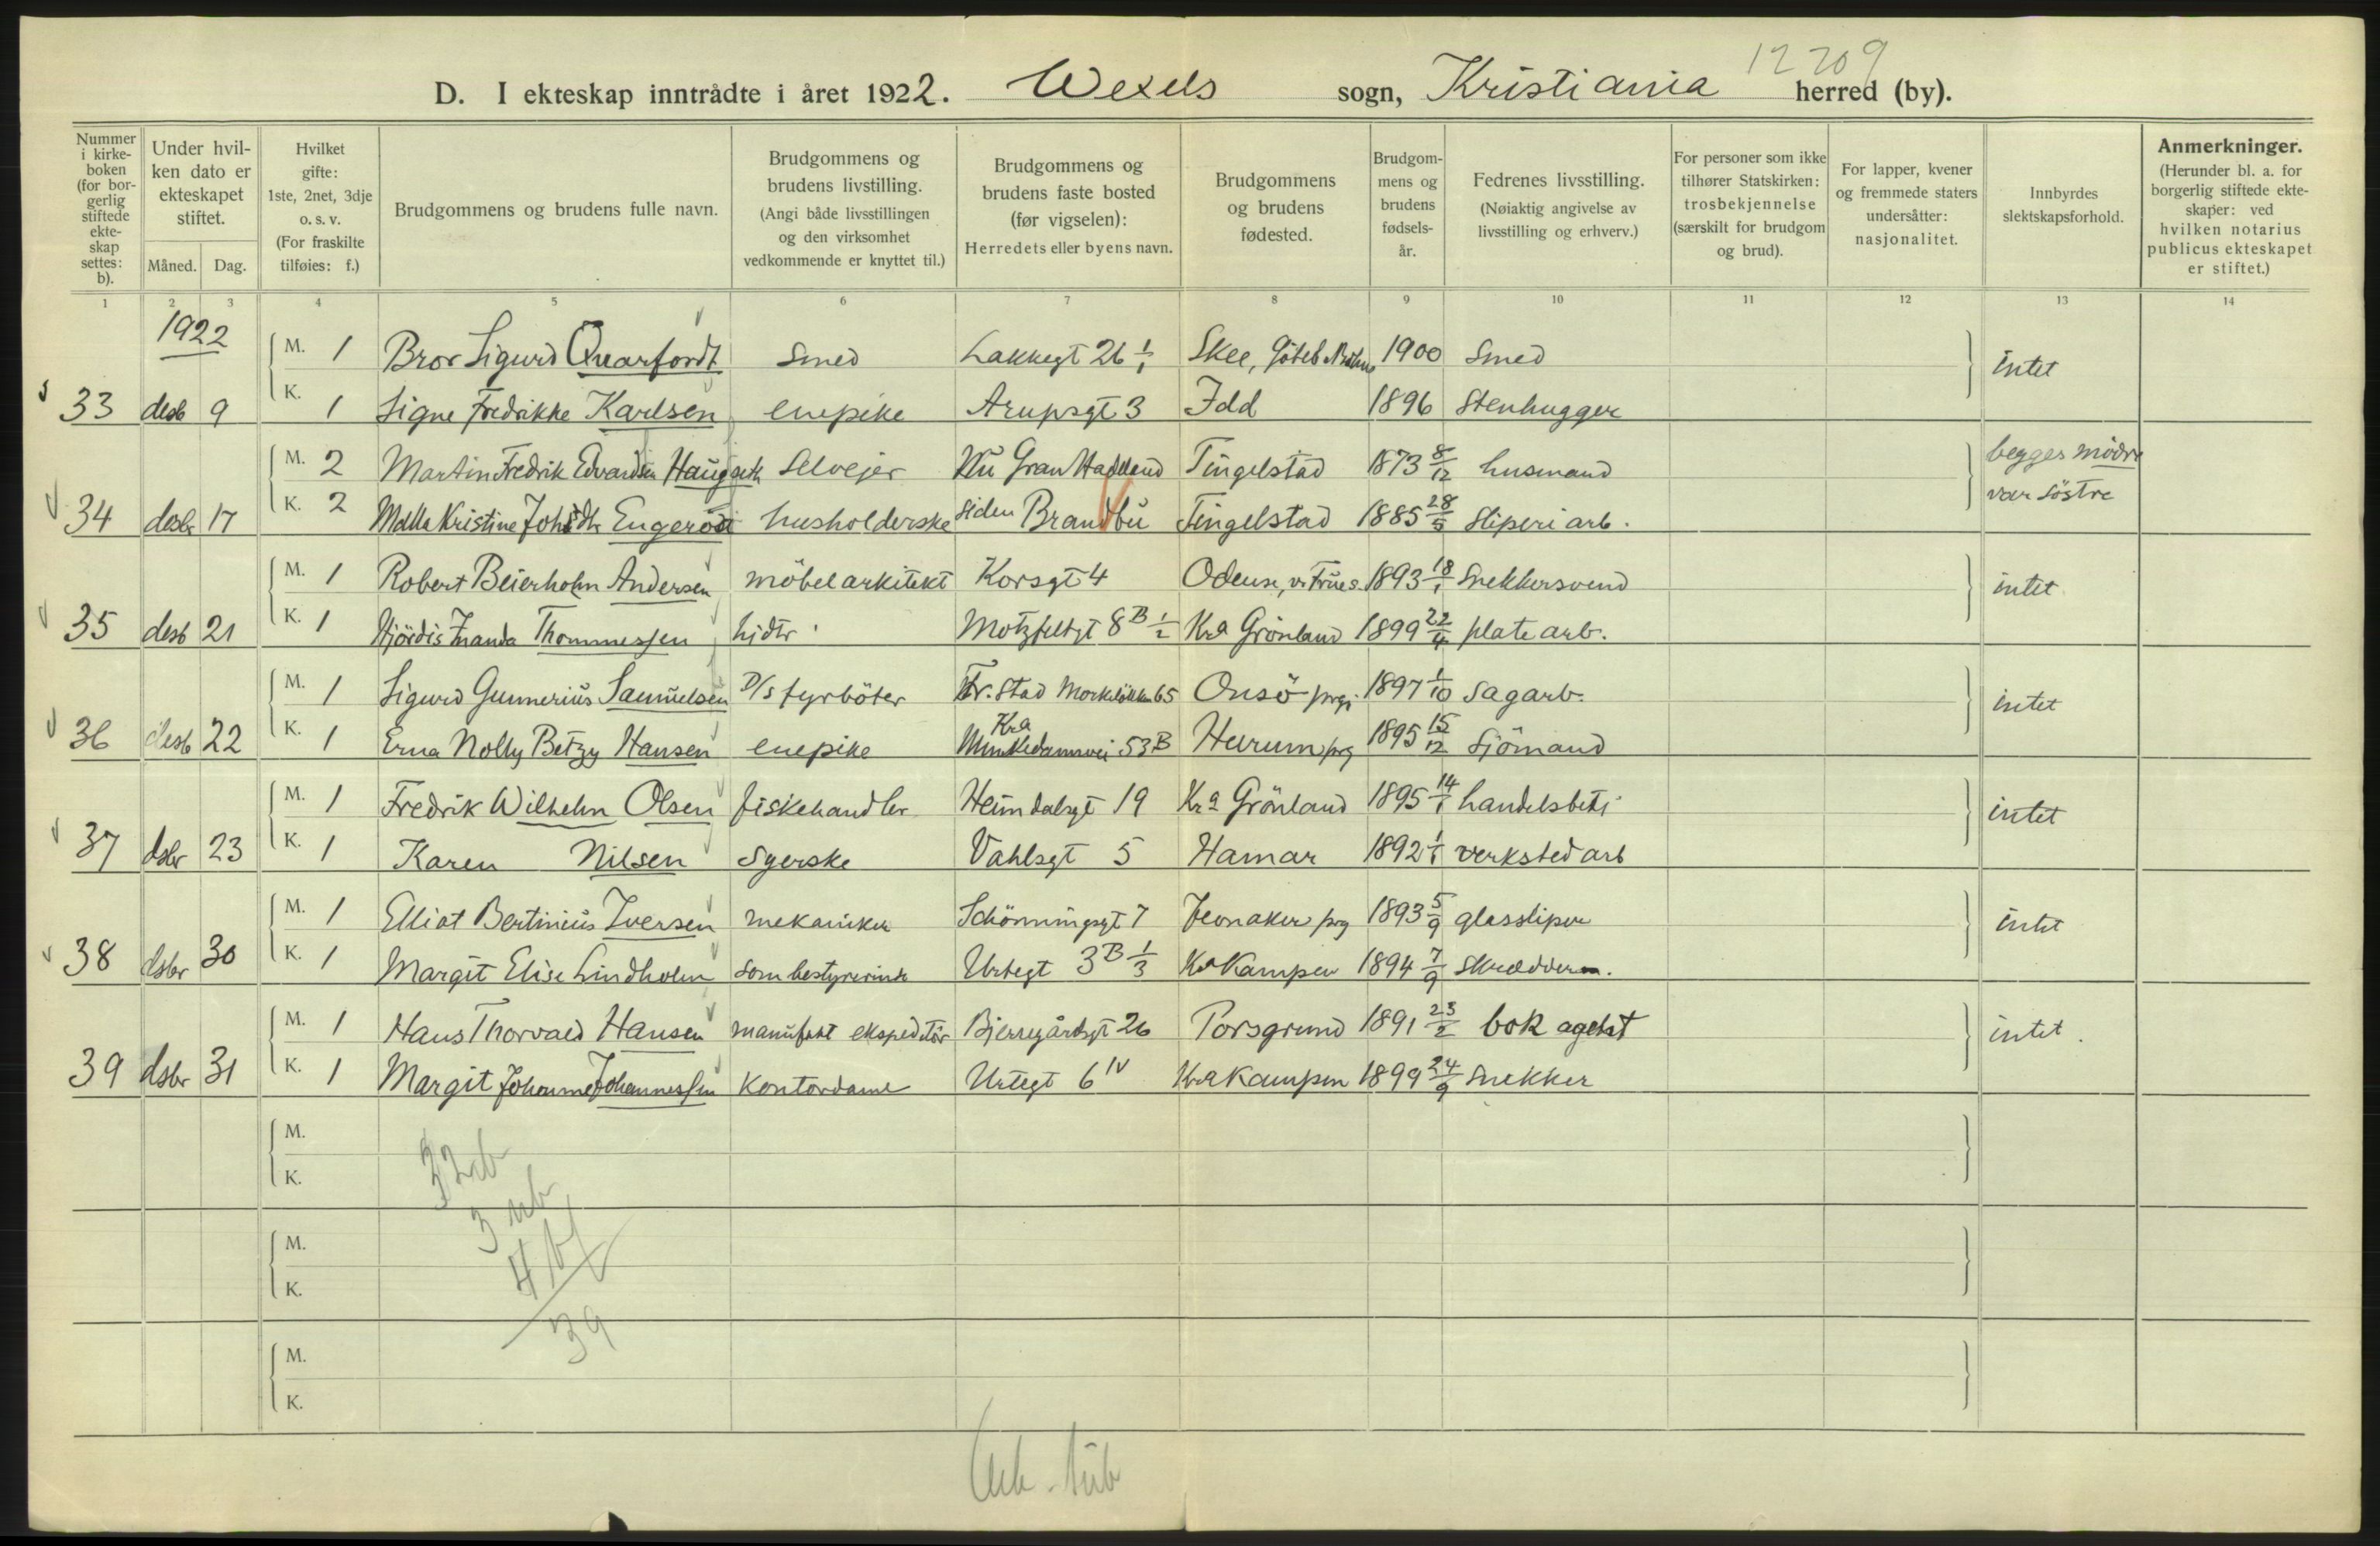 12 209
D. I ekteskap inntrådte i året 1922. Wexels sogn, Kristiania herred (by).
Nummer i kirke-boken (for bor-gerlig stiftede ekte-skap settes: b).
Under hvil-ken dato er ekteskapet stiftet.
Måned. Dag.
Hvilket gifte: 1ste, 2net, 3dje o. s. v. (For fraskilte tilføies: f.)
Brudgommens og brudens fulle navn.
Brudgommens og brudens livstilling. (Angi både livsstillingen og den virksomhet vedkommende er knyttet til.)
Brudgommens og brudens faste bosted (før vigselen): Herredets eller byens navn.
Brudgommens og brudens fødested.
Brudgom-mens og brudens fødsels-år.
Fedrenes livsstilling. (Nøiaktig angivelse av livsstilling og erhverv.)
For personer som ikke tilhører Statskirken: trosbekjennelse (særskilt for brudgom og brud).
For lapper, kvener og fremmede staters undersåtter: nasjonalitet.
Innbyrdes slektskapsforhold.
Anmerkninger. (Herunder bl. a. for borgerlig stiftede ekte-skaper: ved hvilken notarius publicus ekteskapet er stiftet.)
1 2 3 4 5 6 7 8 9 10 11 12 13 14
1922
M. 1 Bror Sigurd Quarfordt smed Lakkegt 26 1/1 Skee, Göteb 1900 Smed intet
33 desb 9 K. 1 Signe Fredrikke Karlsen enepike Arupsgt 3 Idd 1896 Stenhugger
M. 2 Martin Fredrik Edvardsen Haugseth Selveier Nu Gran Hadeland Tingelstad 1873 8/12 husmand begges mødre
34 desbr 17 K. 2 Malla Kristine Johsdtr Engerodt husholderske siden Brandbu Tingelstad 1885 28/5 sliperiarb. var söstre
M. 1 Robert Beierholm Andersen möbelarkitekt Korsgt 4 Odense, v. Frues 1893 18/1 Snekkersvend intet
35 desb 21 K. 1 Hjördis Wanda Thommessen hjdtr. Motzfeldtgt 8B 1/2 Kra Grönland 1899 22/4 platearb.
M. 1 Sigurd Gunnerius Samuelsen D/s fyrböter Fr.stad 65 Onsö prgj. 1897 1/10 Sagarb. intet
36 desb 22 K. 1 Erna Nolly Betzy Hansen enepike Kra Munkedamsvei 53B Hurum prg 1895 15/12 Sjömand
M. 1 Fredrik Wilhelm Olsen fiskehandler Heimdalsgt 19 Kra Grönland 1895 14/1 handelsbetj. intet
37 dsbr 23 K. 1 Karen Nilsen Syerske Vahlsgt 5 Hamar 1892 1/1 verkstedarb
M. 1 Elliot Bertinius Iversen mekaniker Schönningsgt 7 Jevnaker prg 1893 5/9 glassliper intet
38 dsbr 30 K. 1 Margit Elise Lindholm Urtegt 3B 1/3 Kra Kampen 1894 7/9 Skrædderm.
M. 1 Hans Thorvald Hansen manufakt ekspeditör Bjerregårdsgt 26 Porsgrund 1891 23/2 bok agent intet.
39 dsbr 31 K. 1 Margit Johanne Johannessen Kontordame Urtegt 6 IV Kra Kampen 1899 24/9 Snekker
M.
K.
M.
K.
M.
K.
39